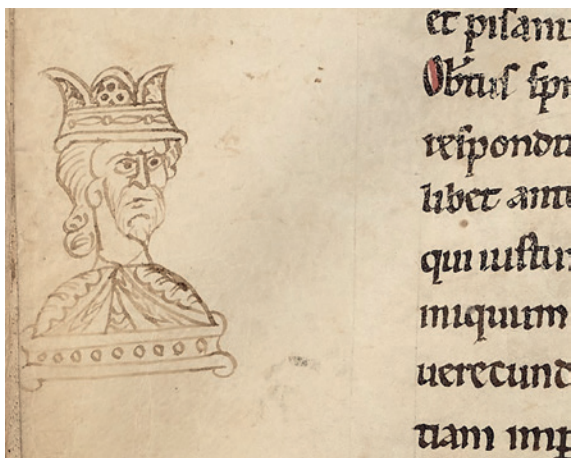 et pisani
Obtus spr
respondit
libet ante
qui iustur
iniquum
uerecund
tiam imp